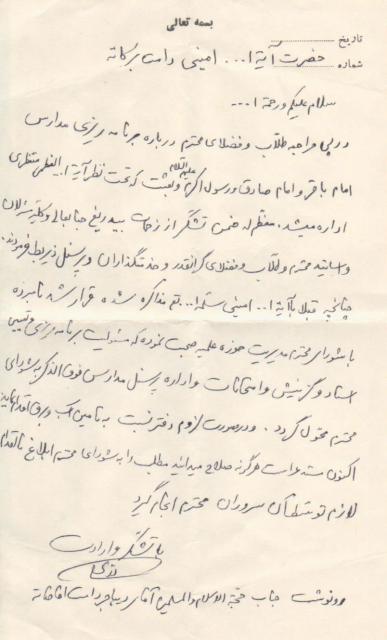 بسمه تعالی
تاریخ
شماره
حضرت آیة ا... امینی دامت برکاته
سلام علیکم و رحمة ا...
در پی مراجعه طلاب و فضلای محترم درباره برنامه ریزی مدارس
امام باقر و امام صادق و رسول اکرم علیهم السلام و بعثت که تحت نظر آیة ا... العظمی منتظری
اداره میشد. معظم له ضمن تشکر از زحمات بیدریغ جنابعالی و کلیه مسئولان
و اساتید محترم و طلاب و فضلای گرانقدر و خدمتگذاران و پرسنل ذیربط فرمودند:
چنانچه قبلا با آیة ا... امینی سلمه ا... تم مذاکره شده قرار شد نامبرده
با شورای محترم مدیریت حوزه علمیه صحبت نموده که مسئولیت برنامه ریزی و تعیین
استاد و گزینش و امتحانات و اداره پرسنل مدارس فوق الذکر به شورای
محترم محول گردد. و در صورت لزوم دفتر نسبت به تامین آب و برق اقدام نماید
اکنون مستدعی است هرگونه صلاح میدانید مطلب را به شورای محترم ابلاغ تا اقدام
لازم توسط آن سروران محترم انجام گیرد
با تشکر و ارادت
رونوشت جناب حجة الاسلام والمسلمین آقای دامت افاضاته